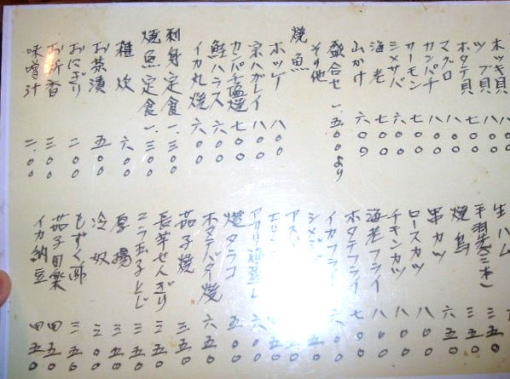 ホッキ貝 八
ツブ貝 八
ホタテ貝 七〇〇
マグロ 八〇〇
カンパチ 八〇〇
サーモン 七〇〇
シメサバ 六〇〇
海老 七〇〇
山かけ 六〇〇
盛合せ 一、五〇〇より
その他
焼魚
ホッケ 八〇〇
宗八ガレイ 八〇〇
カンパチ塩焼 七〇〇
鮭ハラス 六〇〇
イカ丸焼 六〇〇
刺身定食 一、三〇〇
焼魚定食 一、三〇〇
雑炊 六〇〇
お茶漬 五〇〇
おにぎり 二〇〇
お新香 三〇〇
味噌汁 二〇〇
生ハム
手羽焼(三本) 三五〇
焼鳥 六五〇
串カツ 八〇〇
ロースカツ 八〇〇
チキンカツ
海老フライ 八〇〇
ホタテフライ 七〇〇
イカフライ 六〇〇
焼タラコ 五〇〇
ホタテバター焼 六五〇
茄子焼 三五〇
長芋せんぎり 三五〇
ニラ玉子とじ 三五〇
厚揚 三五〇
冷奴 三〇〇
もずく酢 三五〇
茄子田楽 四五〇
イカ納豆 四五〇